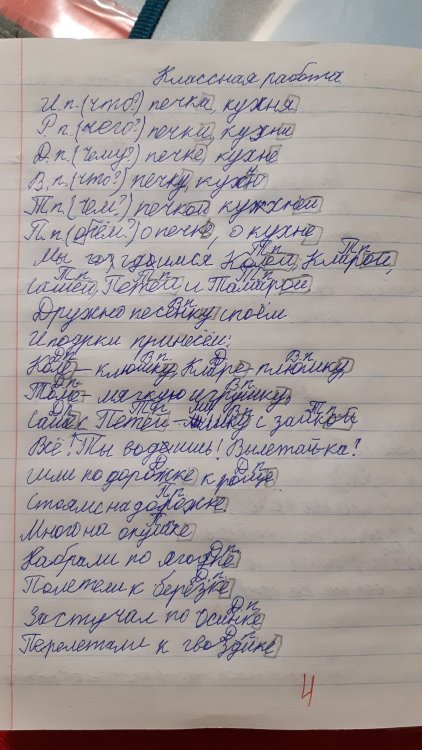 Классная работа
И.п. (что?) печка, кухня
Р.п. (чего?) печки, кухни
Д.п. (чему?) печке кухне
В.п. (что?) печку, кухню
Т.п. (чем?) печкой кухней
П.п. (о чём?) о печке, о кухне
Мы с Колей, Кларой,
Петей и Тамарой
Дружно песенку споём
И подарки принесём:
Коле - клюшку, Кларе -
Толе - мягкую игрушку,
Саше с Петей - с зайкой
Всё! Ты водишь! Вылетай-ка!
Шли по дорожке к роще
Стояли на дорожке
Много на опушке
Набрали по ягодке
Полетели к берёзке
Застучал по осинке
Перелетали к гвоздике
4